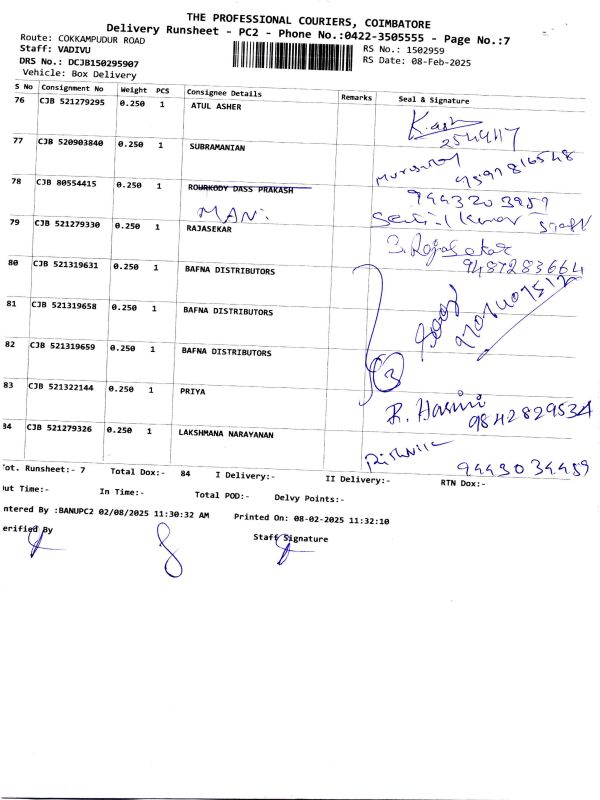 THE PROFESSIONAL COURIERS, COIMBATORE
Delivery Runsheet - PC2 - Phone No.:0422-3505555 - Page No.:7
Route: COKKAMPUDUR ROAD RS No.: 1502959
Staff: VADIVU RS Date: 08-Feb-2025
DRS No.: DCJB150295907
Vehicle: Box Delivery
S No Consignment No Weight PCS Consignee Details Remarks Seal & Signature
76 CJB 521279295 0.250 1 ATUL ASHER
2544117
77 CJB 520903840 0.250 1 SUBRAMANIAN
78 CJB 80554415 0.250 1 ROURKODY DASS PRAKASH
9443203959
MANI
79 CJB 521279330 0.250 1 RAJASEKAR S. Rajasekar
9487283664
80 CJB 521319631 0.250 1 BAFNA DISTRIBUTORS
81 CJB 521319658 0.250 1 BAFNA DISTRIBUTORS
82 CJB 521319659 0.250 1 BAFNA DISTRIBUTORS
3
83 CJB 521322144 0.250 1 PRIYA R. Hasini
9842829534
84 CJB 521279326 0.250 1 LAKSHMANA NARAYANAN
9443034459
ot. Runsheet:- 7 Total Dox:- 84 I Delivery:- II Delivery:- RTN Dox:-
ut Time:- In Time:- Total POD:- Delvy Points:-
ntered By :BANUPC2 02/08/2025 11:30:32 AM Printed On: 08-02-2025 11:32:10
erified By Staff Signature